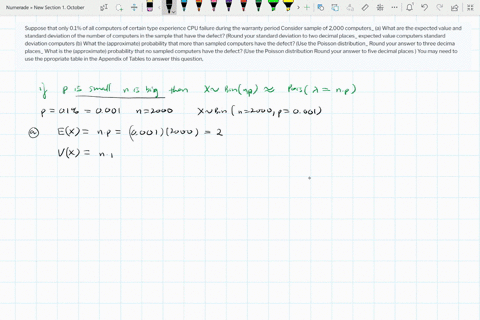 Numerade + New Section 1. October
Suppose that only 0.1% of all computers of certain type experience CPU failure during the warranty period Consider sample of 2,000 computers_ (a) What are the expected value and
standard deviation of the number of computers in the sample that have the defect? (Round your standard deviation to two decimal places_ expected value computers standard
deviation computers (b) What the (approximate) probability that more than sampled computers have the defect? (Use the Poisson distribution_ Round your answer to three decimal
places_ What is the (approximate) probability that no sampled computers have the defect? (Use the Poisson distribution Round your answer to five decimal places.) You may need to
use the ppropriate table in the Appendix of Tables to answer this question.
if p is small n is big then X~Bin(n,p) ≈ Pois(λ = n.p)
p = 0.1% = 0.001 n=2000 X~Bin(n=2000, p=0.001)
(a) E(X) = n.p = (0.001)(2000) = 2
V(X) = n.